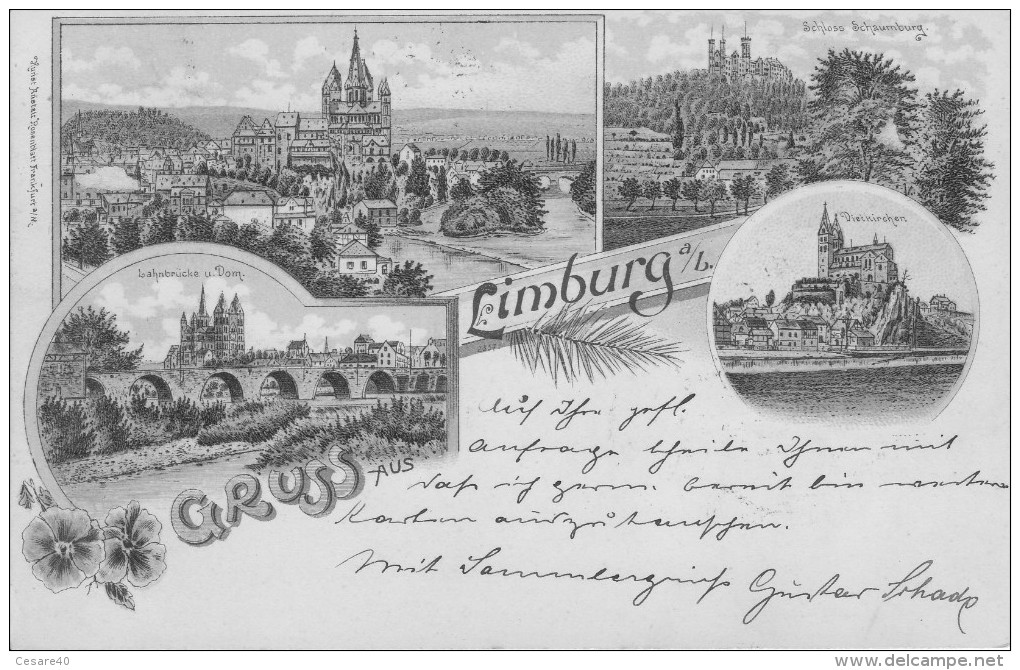 Schloss Schaumburg.
Kunst-Anstalt Rosenblatt Frankfurt a/M.
Lahnbrücke u. Dom.
Dietkirchen
GRUSS AUS
Limburg a/L.
Auf Ihre gefl.
Anfrage theile Ihnen mit
daß ich gern bereit bin weitere
Karten auszutauschen.
Mit Sammlergruß Gustav Schade
Cesare40
delcampe.net